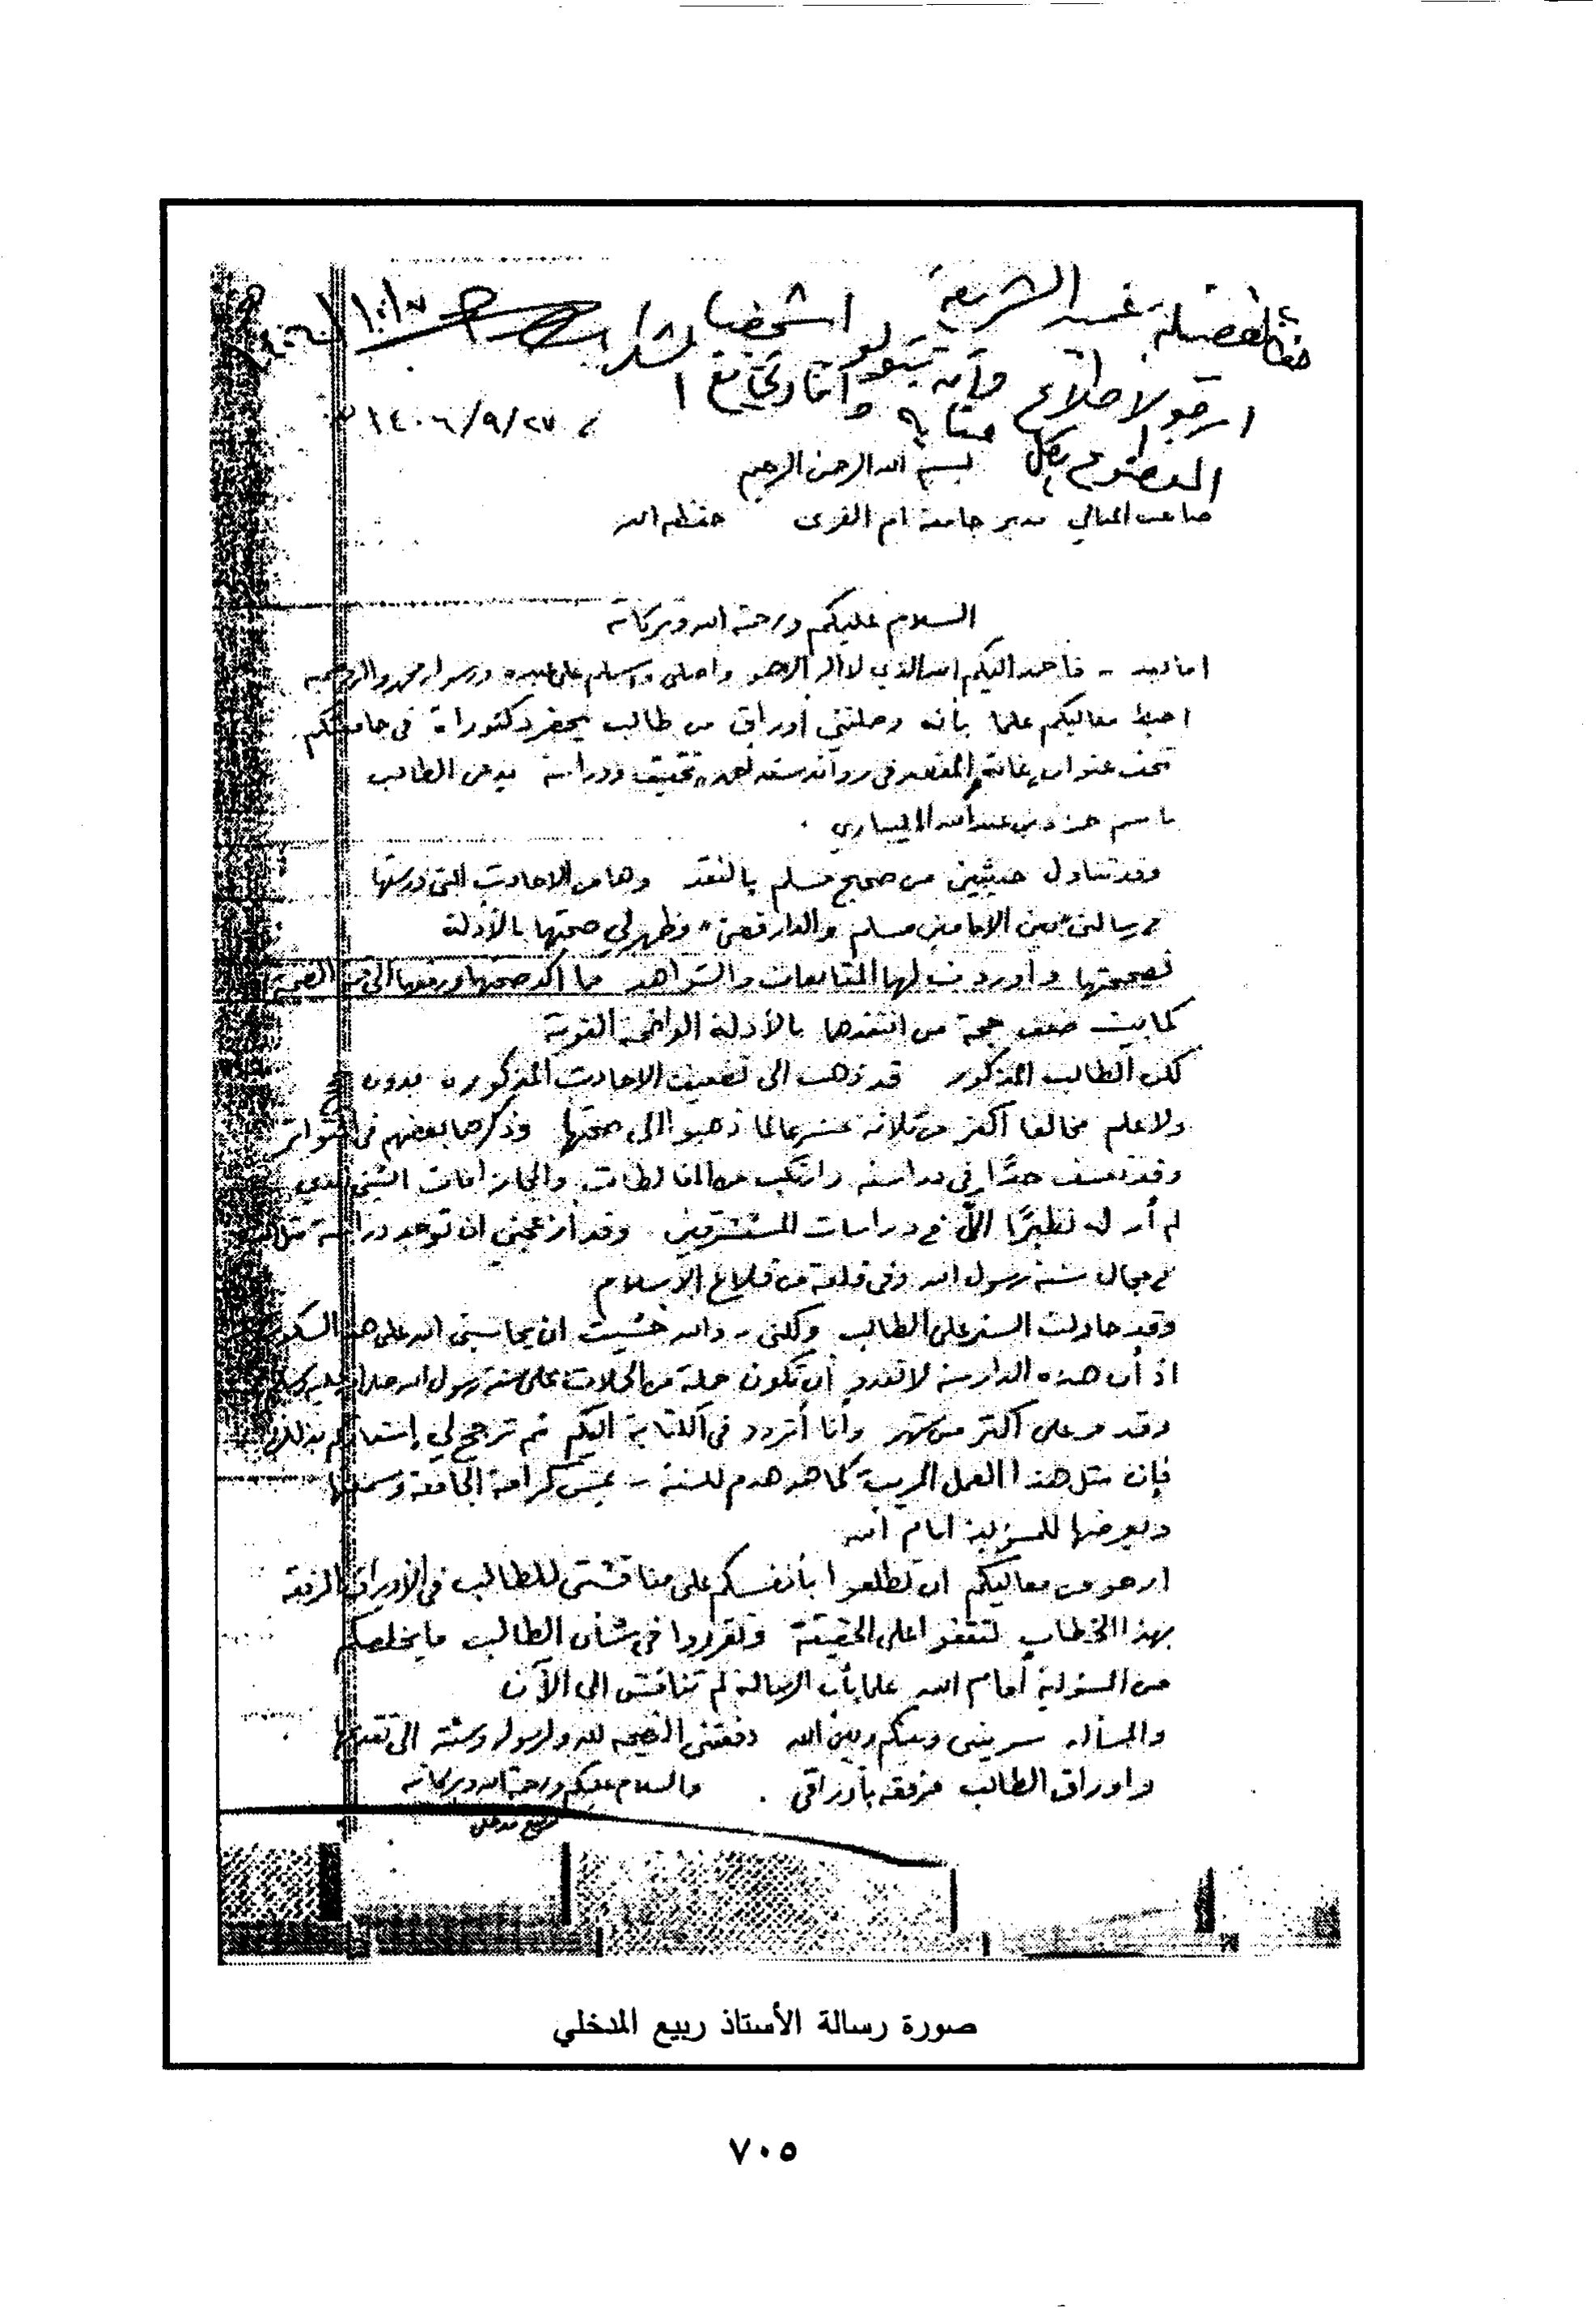 فضيلة عميد الشريعة
ارجو الاطلاع وأن تتولوا شخصيا
الموضوع بكل عناية و
١٤٠٦/٩/٢٧
بسم الله الرحمن الرحيم
صاحب المعالي مدير جامعة ام القرى حفظه الله
السلام عليكم ورحمة الله وبركاته
اما بعد - فأحمد اليكم الله الذي لا اله الا هو واصلي واسلم على عبده ورسوله محمد وآله وصحبه
احيط معاليكم علما بأنه وصلتني أوراق من طالب يحضر دكتوراة في جامعتكم
تحت عنوان غاية المقصد في زوائد مسند أحمد تحقيق ودراسة يدعى الطالب
باسم حمزة بن عبد الله المليباري .
وقد تناول حديثين من صحيح مسلم بالنقد وهما من الاحاديث التي درستها
في رسالتي "بين الامامين مسلم والدارقطني" وظهر لي صحتها بالأدلة
لصحتها وأوردت لها المتابعات والشواهد مما أكد صحتها ورفعها الى قمة الصحة
كما بينت ضعف حجة من انتقدها بالأدلة الواضحة القوية
لكن الطالب المذكور قد ذهب الى تضعيف الاحاديث المذكورة بدون
ولا علم مخالفا أكثر من ثلاثة عشر عالما ذهبوا الى صحتها وذكرها بعضهم في المتواتر
وقد تعسف جدًّا في دراسته وارتكب من المغالطات والمجازفات الشيء الذي
لم أر له نظيرًا الّا في دراسات المستشرقين وقد ازعجني ان توجد دراسة مثل
في مجال سنة رسول الله وفي قلعة من قلاع الاسلام
وقد حاولت الستر على الطالب ولكني - والله خشيت ان يحاسبني الله على هذا السكوت
اذ أن هذه الدراسة لا تعدو أن تكون حملة من الحملات على سنة رسول الله صلى الله عليه وسلم
وقد مر علي اكثر من شهر وأنا أتردد في الكتابة اليكم ثم ترجح لي إشعاركم بذلك
فإن مثل هذا العمل المريب كما هو هدم للسنة - يمس كرامة الجامعة وسمعتها
ويعرضها للمسؤلية امام الله
ارجو من معاليكم ان تطلعوا بأنفسكم على مناقشتي للطالب في الأوراق المرفقة
بهذا الخطاب لتقفوا على الحقيقة وتقرروا في شأن الطالب ما يخلصكم
من المسئولية أمام الله علما بأن الرسالة لم تناقش الى الآن
والمسأله سر بيني وبينكم وبين الله دفعتني النصيحه لله ولرسوله وسنته الى تقديمها
واوراق الطالب مرفقه بأوراقي . والسلام عليكم ورحمة الله وبركاته
ربيع مدخلي
صورة رسالة الأستاذ ربيع المدخلي
٧٠٥